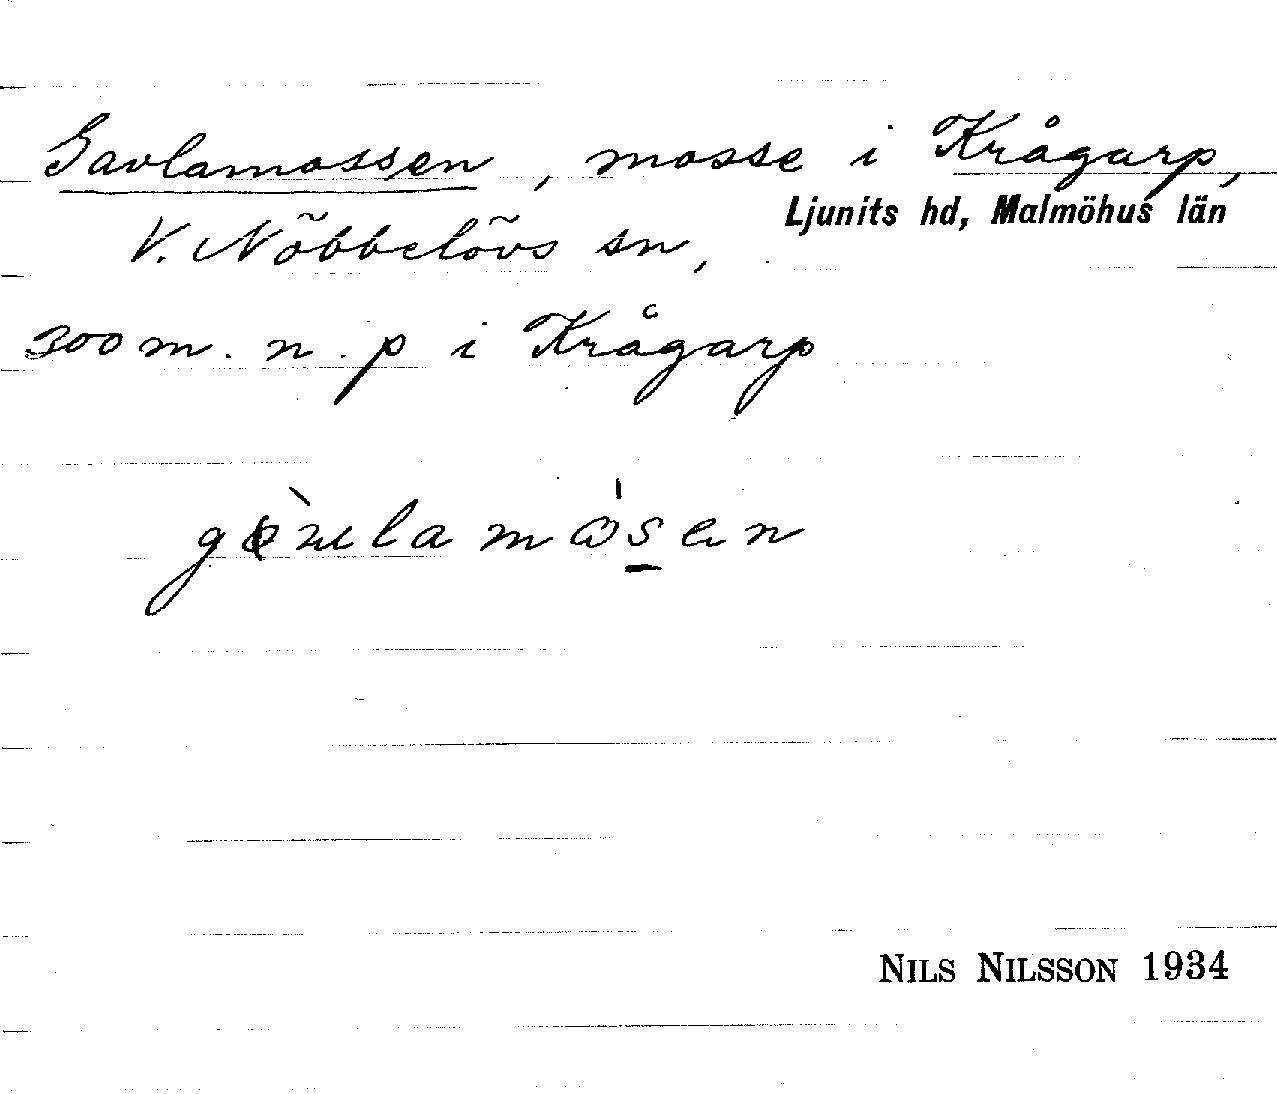 Gavlamossen, mosse i Krågarp,
Ljunits hd, Malmöhus län
V. Nöbbelövs sn,
300 m. n. p i Krågarp
NILS NILSSON 1934